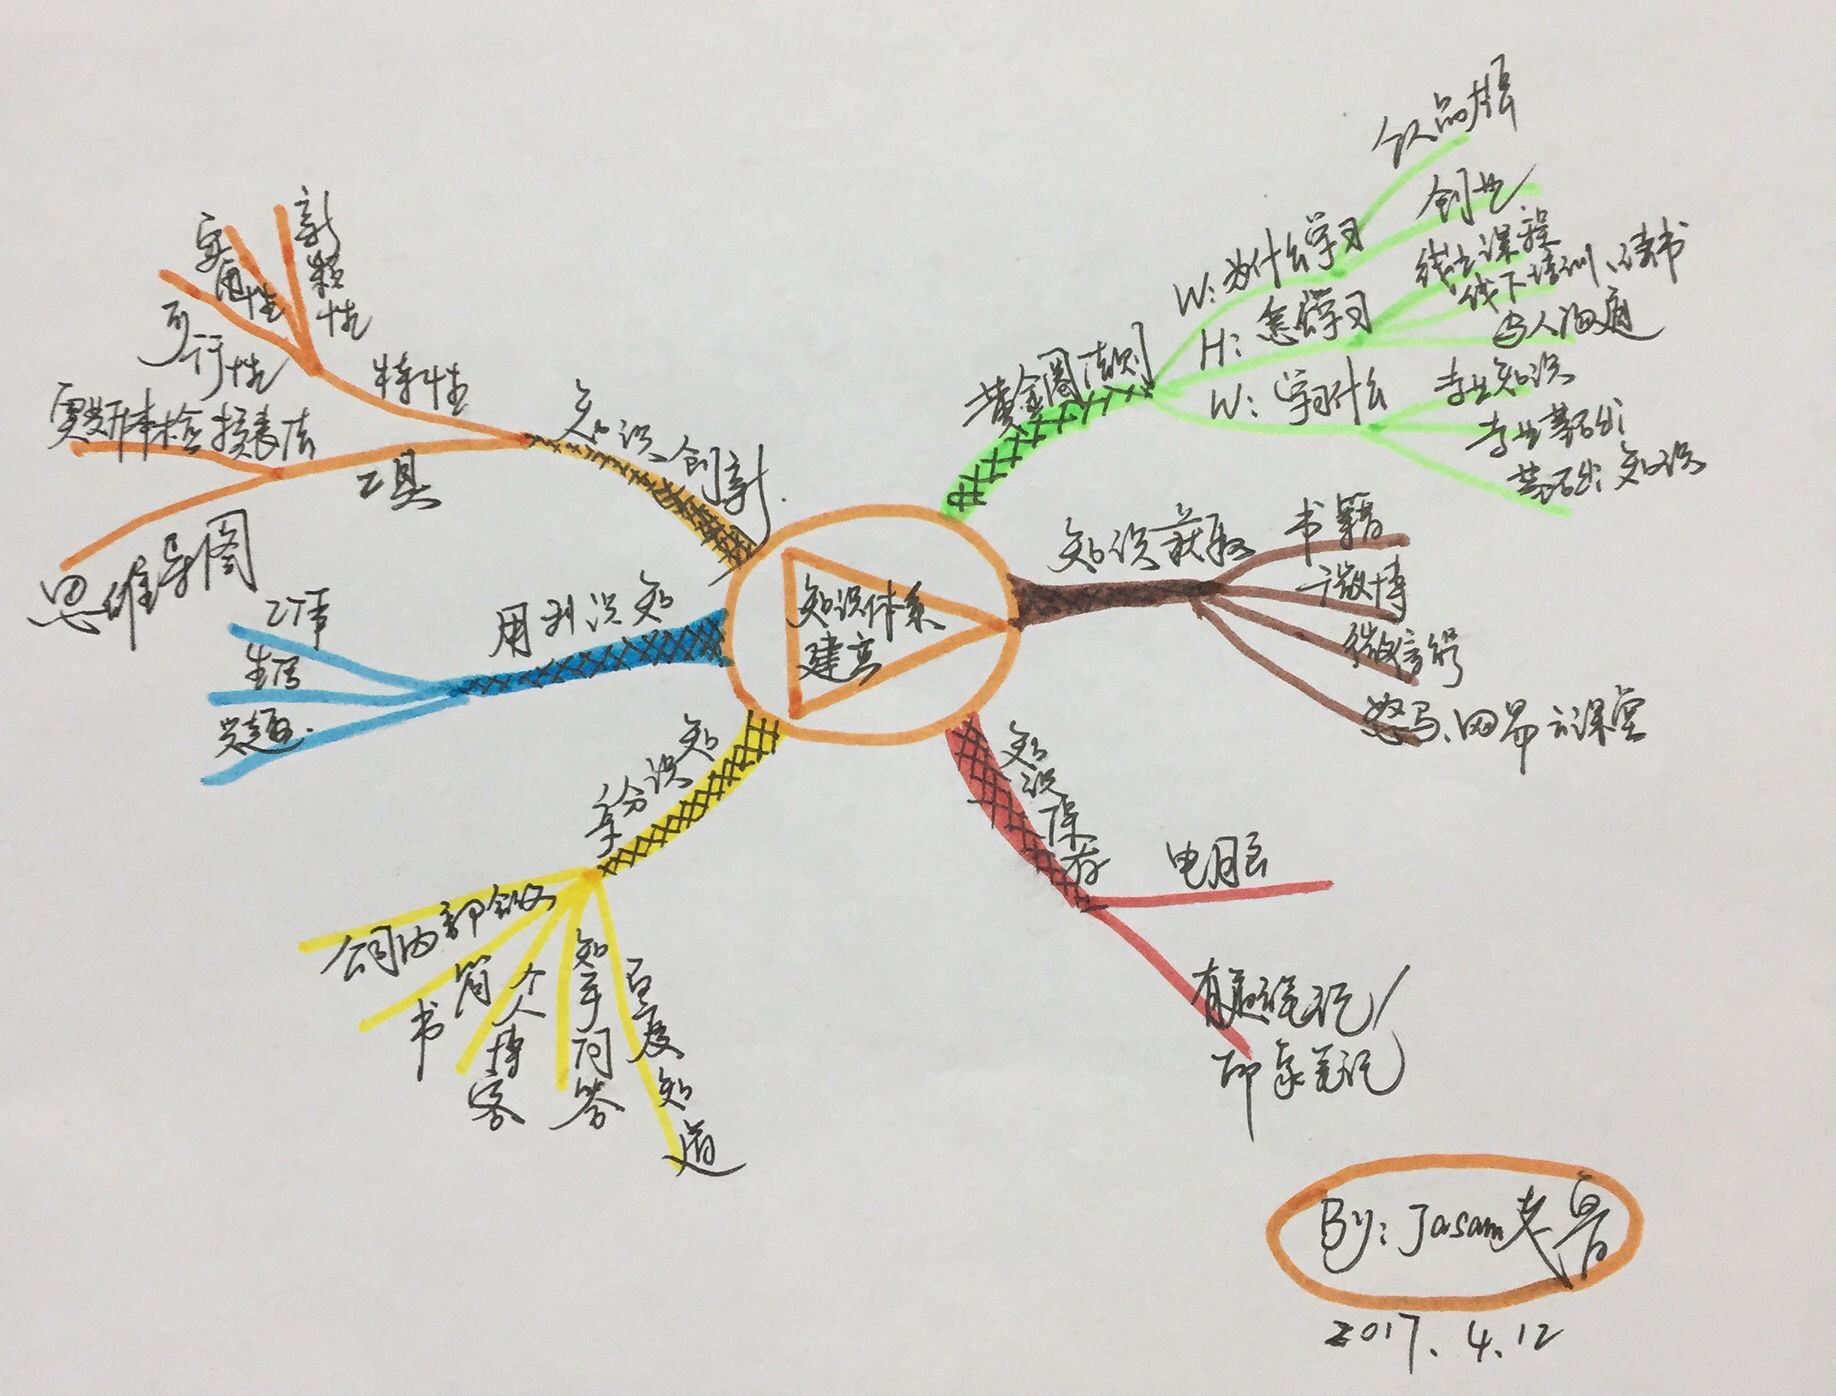 知识体系
建立
黄金圈法则
W:为什么学习
创业
H:怎么学习
线上课程
线下培训、读书
与人沟通
W:学习什么
专业知识
专业基础
基础知识
知识获取
书籍
微博
微信
网易云课堂
知识保存
电脑
有道笔记/
印象笔记
知识分享
公司内部
简书
个人博客
知乎问答
百度知道
知识利用
工作
生活
兴趣
知识创新
特性
新颖性
实用性
可行性
工具
奥斯本检核表法
思维导图
By:Jasam老鲁
2017.4.12